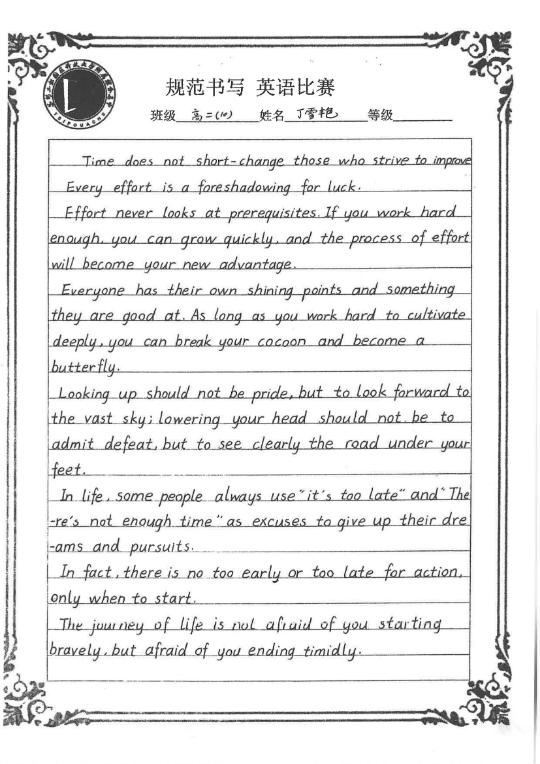 规范书写 英语比赛
班级 高二(10) 姓名 丁雪艳 等级
Time does not short-change those who strive to improve
Every effort is a foreshadowing for luck.
Effort never looks at prerequisites. If you work hard
enough, you can grow quickly, and the process of effort
will become your new advantage.
Everyone has their own shining points and something
they are good at. As long as you work hard to cultivate
deeply, you can break your cocoon and become a
butterfly.
Looking up should not be pride, but to look forward to
the vast sky; lowering your head should not be to
admit defeat, but to see clearly the road under your
feet.
In life, some people always use "it's too late" and "The
-re's not enough time" as excuses to give up their dre
-ams and pursuits.
In fact, there is no too early or too late for action,
only when to start.
The journey of life is not afraid of you starting
bravely, but afraid of you ending timidly.